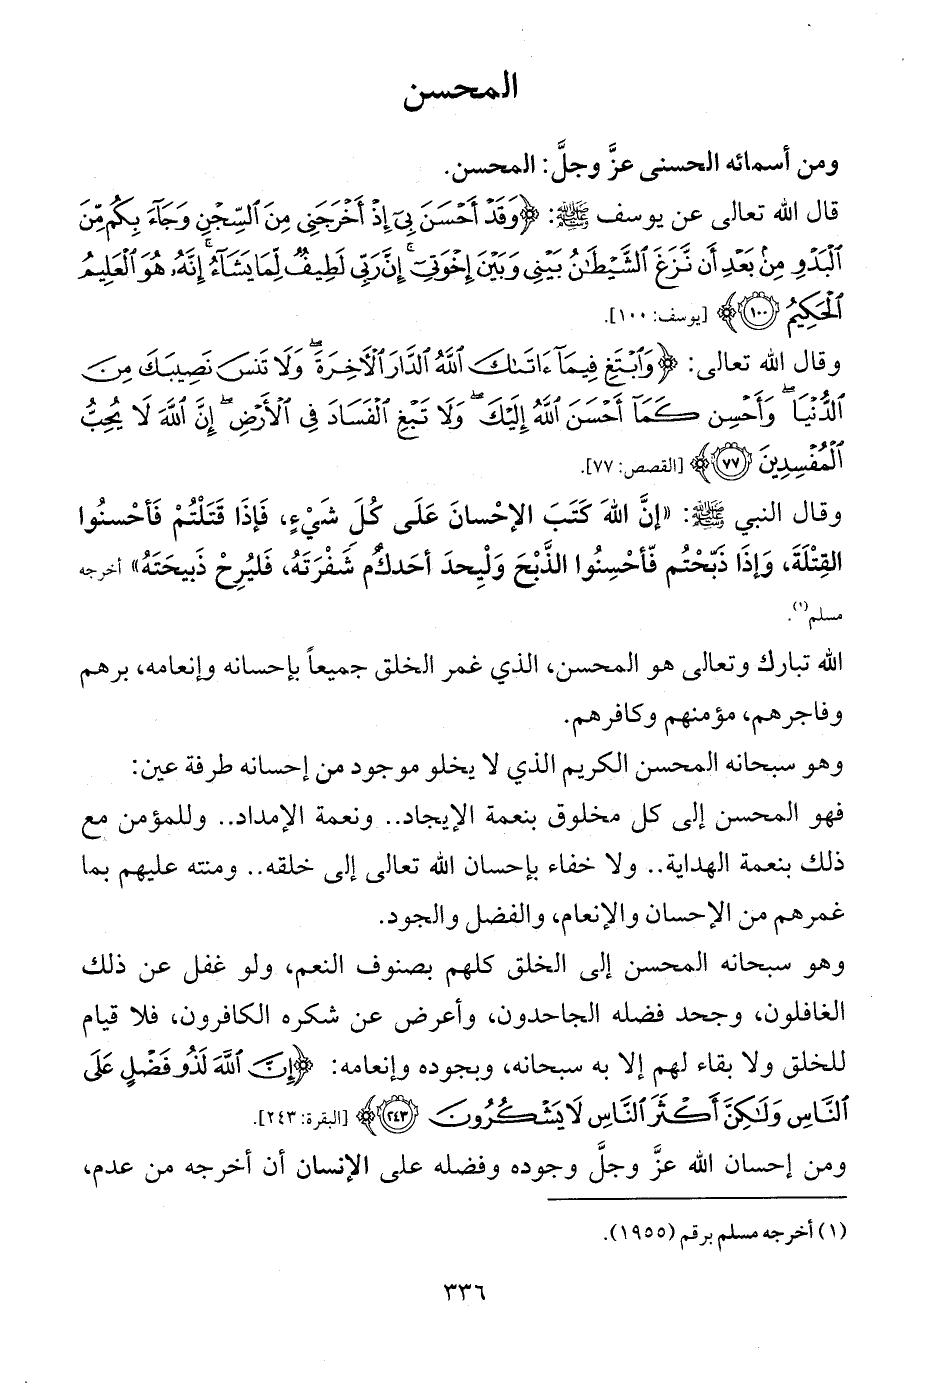 المحسن
ومن أسمائه الحسنى عزَّ وجلَّ: المحسن.
قال الله تعالى عن يوسف ﷺ: ﴿وَقَدْ أَحْسَنَ بِيٓ إِذْ أَخْرَجَنِي مِنَ ٱلسِّجْنِ وَجَآءَ بِكُم مِّنَ
ٱلْبَدْوِ مِنۢ بَعْدِ أَن نَّزَغَ ٱلشَّيْطَٰنُ بَيْنِي وَبَيْنَ إِخْوَتِيٓ ۚ إِنَّ رَبِّي لَطِيفٌ لِّمَا يَشَآءُ ۚ إِنَّهُۥ هُوَ ٱلْعَلِيمُ
ٱلْحَكِيمُ ١٠٠﴾ [يوسف: ١٠٠].
وقال الله تعالى: ﴿وَٱبْتَغِ فِيمَآ ءَاتَىٰكَ ٱللَّهُ ٱلدَّارَ ٱلْأَخِرَةَ ۖ وَلَا تَنسَ نَصِيبَكَ مِنَ
ٱلدُّنْيَا ۖ وَأَحْسِن كَمَآ أَحْسَنَ ٱللَّهُ إِلَيْكَ ۖ وَلَا تَبْغِ ٱلْفَسَادَ فِي ٱلْأَرْضِ ۖ إِنَّ ٱللَّهَ لَا يُحِبُّ
ٱلْمُفْسِدِينَ ٧٧﴾ [القصص: ٧٧].
وقال النبي ﷺ: «إنَّ اللهَ كَتَبَ الإحْسانَ عَلَى كُلِّ شَيْءٍ، فَإذَا قَتَلْتُمْ فَأحْسنُوا
القِتْلَةَ، وَإذَا ذَبّحْتُم فّأحْسِنُوا الذَّبْحَ وَلْيحدَ أحَدكُم شَفْرَتَهُ، فَليُرِحْ ذَبيحَتَهُ» أخرجه
مسلم(١).
الله تبارك وتعالى هو المحسن، الذي غمر الخلق جميعاً بإحسانه وإنعامه، برهم
وفاجرهم، مؤمنهم وكافرهم.
وهو سبحانه المحسن الكريم الذي لا يخلو موجود من إحسانه طرفة عين:
فهو المحسن إلى كل مخلوق بنعمة الإيجاد.. ونعمة الإمداد.. وللمؤمن مع
ذلك بنعمة الهداية.. ولا خفاء بإحسان الله تعالى إلى خلقه.. ومنته عليهم بما
غمرهم من الإحسان والإنعام، والفضل والجود.
وهو سبحانه المحسن إلى الخلق كلهم بصنوف النعم، ولو غفل عن ذلك
الغافلون، وجحد فضله الجاحدون، وأعرض عن شكره الكافرون، فلا قيام
للخلق ولا بقاء لهم إلا به سبحانه، وبجوده وإنعامه: ﴿إِنَّ ٱللَّهَ لَذُو فَضْلٍ عَلَى
ٱلنَّاسِ وَلَٰكِنَّ أَكْثَرَ ٱلنَّاسِ لَا يَشْكُرُونَ ٢٤٣﴾ [البقرة: ٢٤٣].
ومن إحسان الله عزَّ وجلَّ وجوده وفضله على الإنسان أن أخرجه من عدم،
(١) أخرجه مسلم برقم (١٩٥٥).
٣٣٦